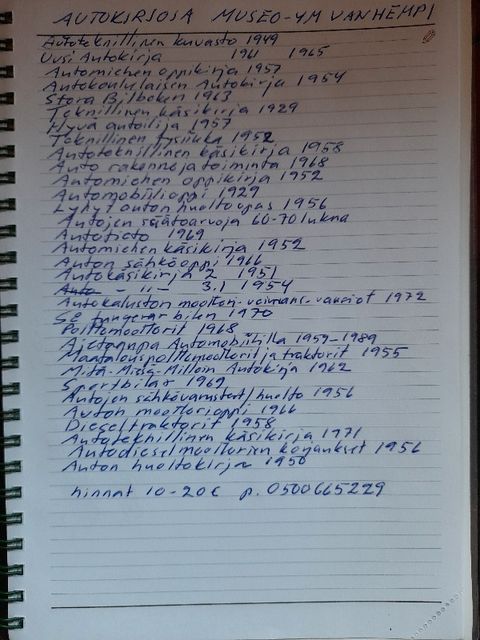 AUTOKIRJOJA MUSEO-YM VANHEMPI
Autoteknillinen kuvasto 1949
Uusi Autokirja 1961 1965
Automiehen oppikirja 1957
Autokoululaisen Autokirja 1954
Stora Bilboken 1963
Teknillinen käsikirja 1929
Hyvä autoilija 1957
Teknillinen fysiikka 1952
Autoteknillinen käsikirja 1958
Auto rakenne ja toiminta 1968
Automiehen oppikirja 1952
Automobiilioppi 1929
Lyhyt auton huolto opas 1956
Autojen säätöarvoja 60-70 lukna
Autotieto 1969
Automiehen käsikirja 1952
Auton sähköoppi 1966
Autokäsikirja 2 1951
- 11 - 3.1 1954
Autokaluston moottori-voimans.-vauriot 1972
Så fungerar bilen 1970
Polttomoottorit 1968
Ajotapapa Automobiililla 1959-1989
Maatalouspolttomoottorit ja traktorit 1955
Mitä-Missä-Milloin Autokirja 1962
Sportbilar 1969
Autojen sähkövarusteet/huolto 1956
Auton moottorioppi 1966
Dieseltraktorit 1958
Autoteknillinen käsikirja 1971
Autodieselmoottorien korjaukset 1956
Auton huoltokirja 1950
hinnat 10-20€ p. 0500665229